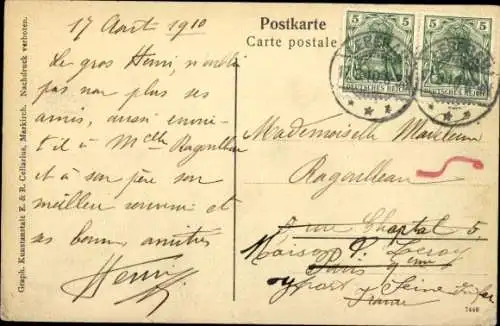 Postkarte
Carte postale
17 Août 1910
Le gros Henri, n'oublie
pas non plus ses
amis, aussi envoie
t il à Melle Ragoulleau
et à son père son
meilleur souvenir et
ses bonnes amitiés
Henri
5 5
DEUTSCHES REICH DEUTSCHES REICH
Mademoiselle Madeleine
Ragoulleau
5 rue Chaptal 5
Maison P. Leroy
Paris
Seine Infre
France
Graph. Kunstanstalt E. & R. Cellarius, Markirch. Nachdruck verboten.
7449